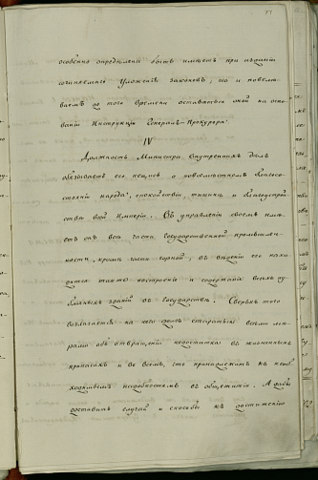 особенно опредѣлено быть имѣетъ при изданіи
сочиняемаго Уложенія законовъ, то и повелѣ-
ваемъ до того времени оставаться оной на осно-
ваніи Инструкціи Генералъ-Прокурора.
IV
Должность Министра Внутреннихъ дѣлъ
обязываетъ его пещись о повсемѣстномъ благосо-
стояніи народа, спокойствіи, тишинѣ и благоустрой-
ствѣ всей Имперіи. Въ управленіи своемъ имѣ-
етъ онъ всѣ части Государственной промышлен-
ности, кромѣ части горной; въ вѣденіи его нахо-
дится также построеніе и содержаніе всѣхъ пу-
бличныхъ зданій въ Государствѣ. Сверхъ того
возлагается на него долгъ стараться всѣми мѣ-
рами объ отвращеніи недостатка въ жизненныхъ
припасахъ и во всемъ, что принадлежитъ къ необ-
ходимымъ надобностямъ въ общежитіи. А дабы
доставить случай и способы къ достиженію